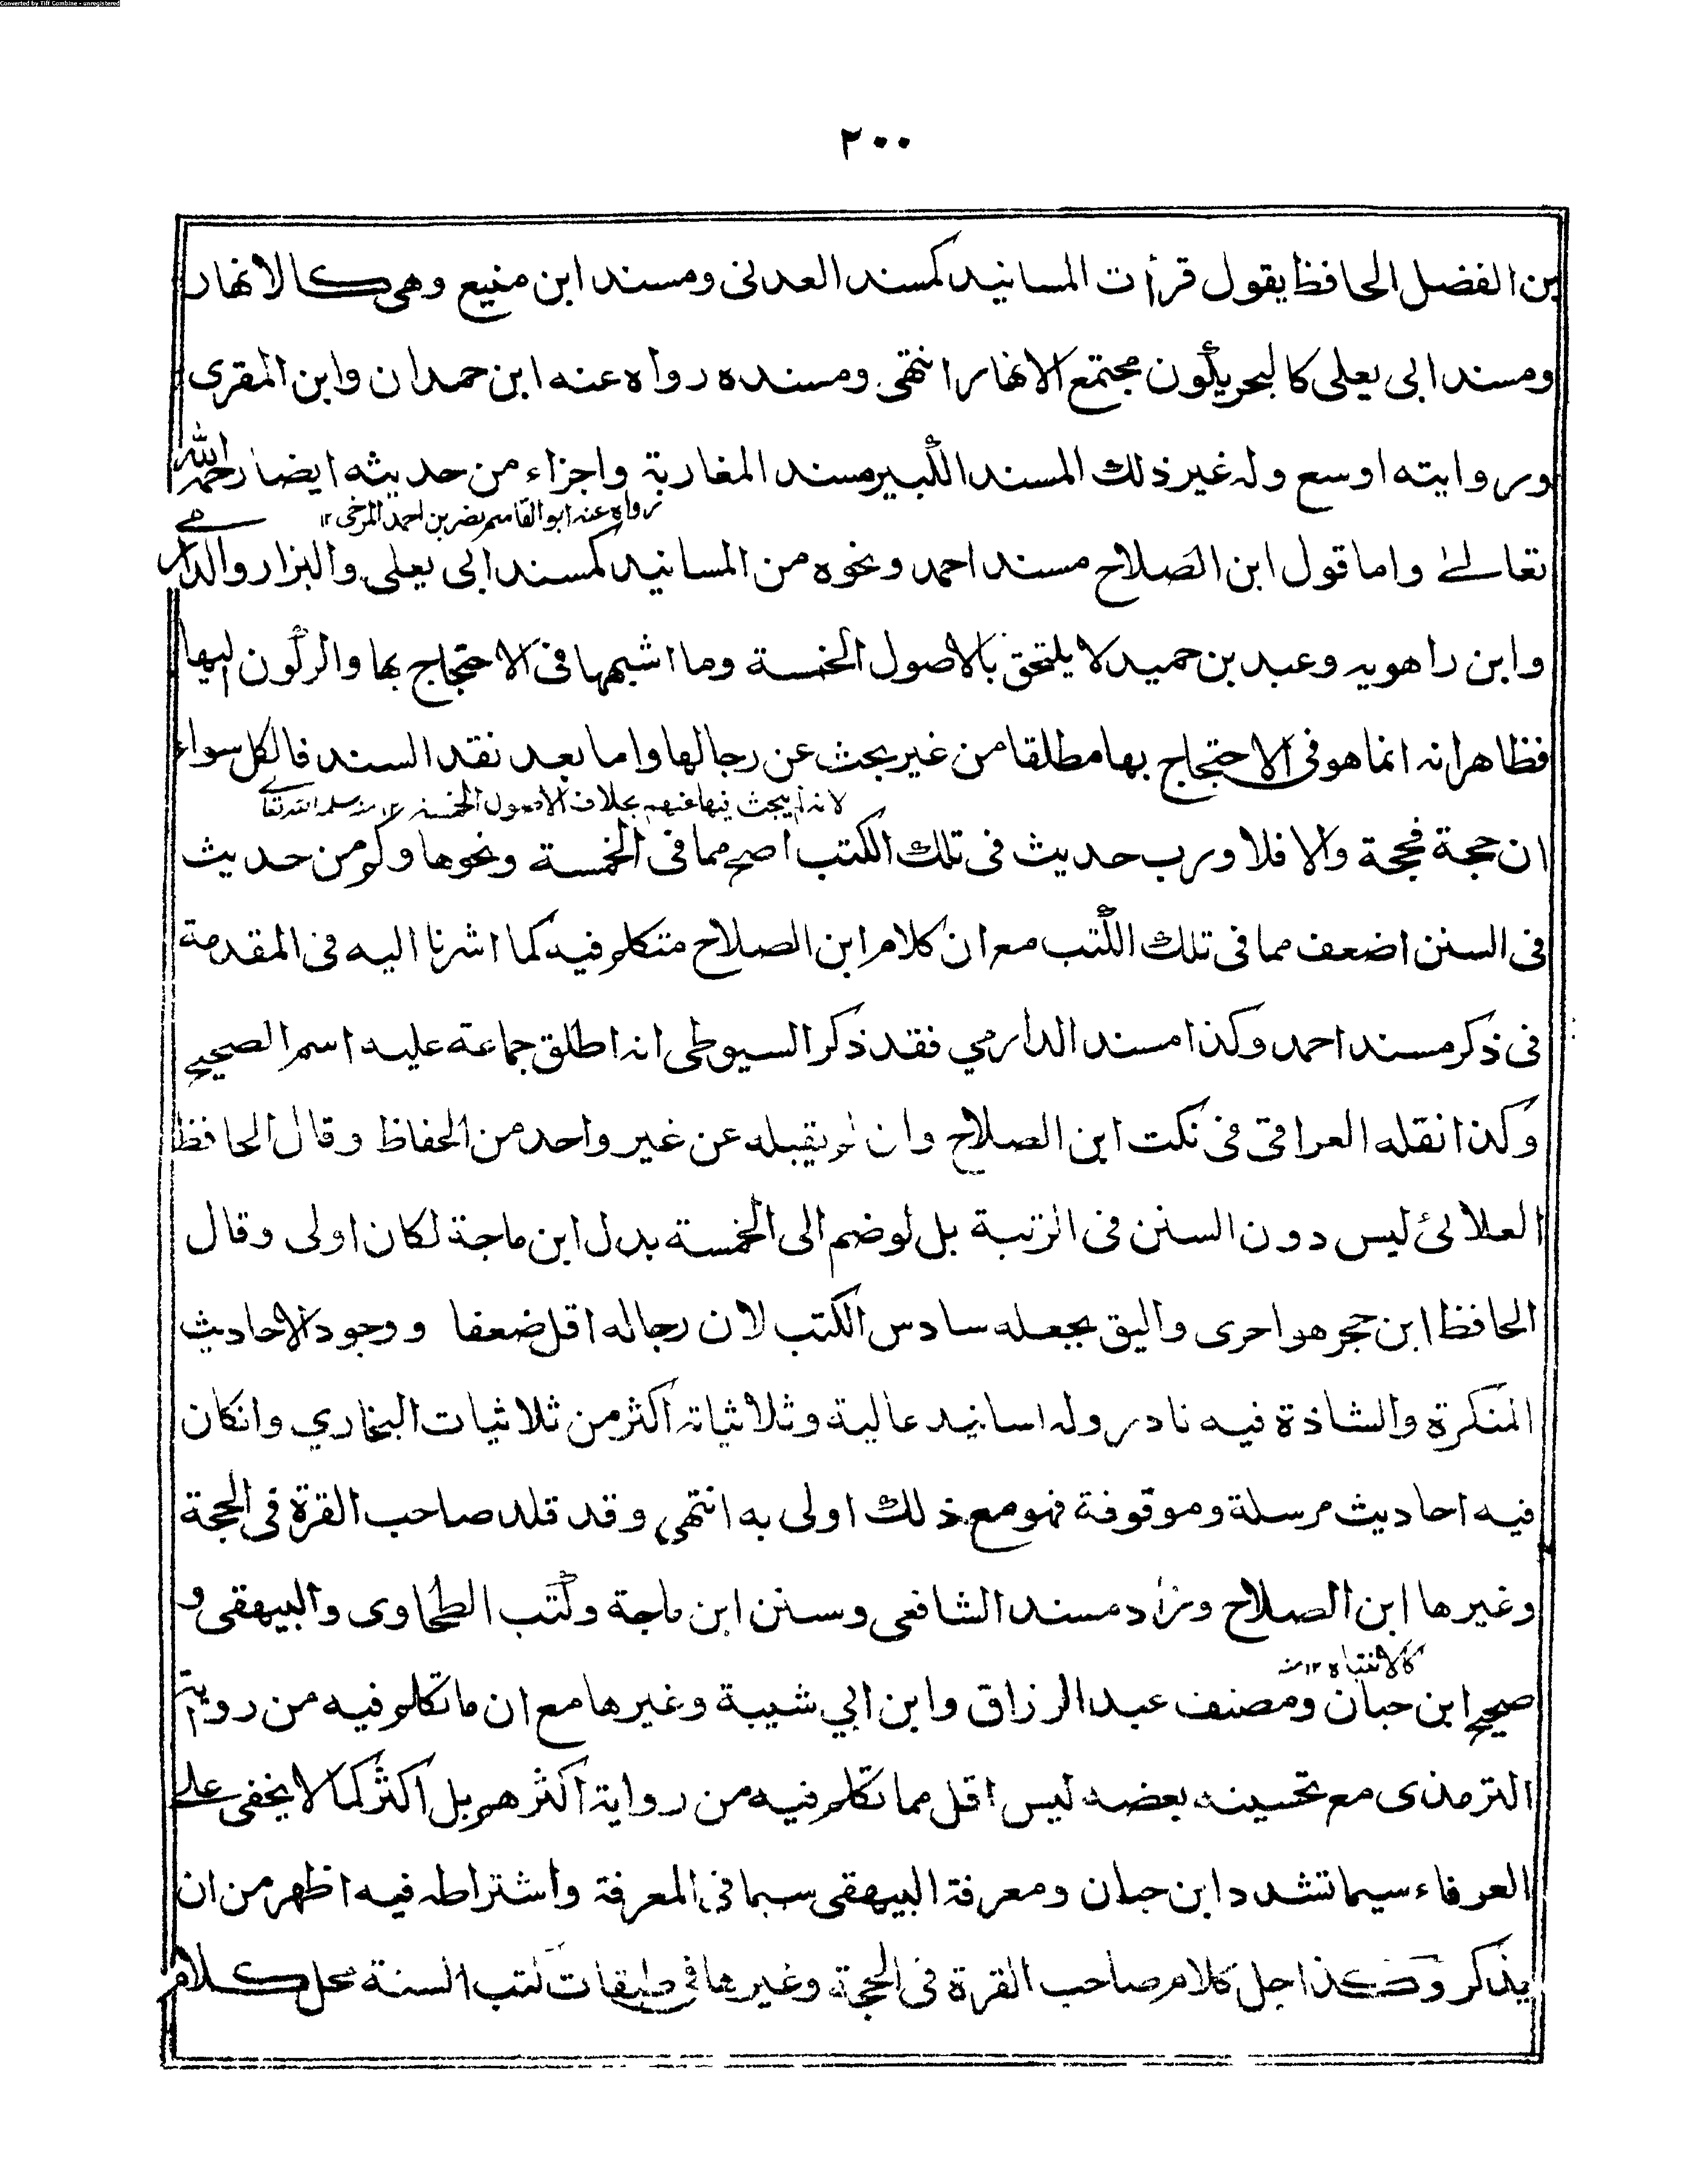 Converted by Tiff Combine - unregistered
٢٠٠
بن الفضل الحافظ يقول قرأت المسانيد كمسند العدنى ومسند ابن منيع وهى كالانهار
ومسند ابى يعلى كالبحر يكون مجتمع الانهار انتهى ومسنده رواه عنه ابن حمدان وابن المقرى
وروايته اوسع وله غير ذلك المسند الكبير مسند المغاربة واجزاء من حديثه ايضا رحمه الله
رواه عنه ابو القاسم نصر بن احمد المرخى ١٢
تعالى واما قول ابن الصلاح مسند احمد ونحوه من المسانيد كمسند ابى يعلى والبزار والدارمى
وابن راهويه وعبد بن حميد لا يلتحق بالاصول الخمسة وما اشبهها فى الاحتجاج بها والركون اليها
فظاهر انه انما هو فى الاحتجاج بها مطلقا من غير بحث عن رجالها واما بعد نقد السند فالكل سواء
لانه لم يبحث فيها عنهم بخلاف الاصول الخمسة ١٢ منه سلمه الله تعالے
ان حجة فحجة والا فلا ورب حديث فى تلك الكتب اصح مما فى الخمسة ونحوها وكم من حديث
فى السنن اضعف مما فى تلك الكتب مع ان كلام ابن الصلاح متكلم فيه كما اشرنا اليه فى المقدمة
فى ذكر مسند احمد وكذا مسند الدارمي فقد ذكر السيوطى انه اطلق جماعة عليه اسم الصحيح
وكذا نقله العراقى فى نكت ابن الصلاح وان لم يقبله عن غير واحد من الحفاظ وقال الحافظ
العلائى ليس دون السنن فى الرتبة بل لو ضم الى الخمسة بدل ابن ماجة لكان اولى وقال
الحافظ ابن حجر هو احرى واليق بجعله سادس الكتب لان رجاله اقل ضعفا ووجود الاحاديث
المنكرة والشاذة فيه نادر وله اسانيد عالية وثلاثياته اكثر من ثلاثيات البخاري وانكان
فيه احاديث مرسلة وموقوفة فهو مع ذلك اولى به انتهى وقد قلد صاحب القرة فى الحجة
وغيرها ابن الصلاح وزاد مسند الشافعى وسنن ابن ماجة وكتب الطحاوى والبيهقى و
كالانتباه ١٢ منه
صحيح ابن حبان ومصنف عبد الرزاق وابن ابي شيبة وغيرها مع ان ما تكلم فيه من رواية
الترمذى مع تحسينه بعضه ليس اقل مما تكلم فيه من رواية اكثرهم بل اكثر كما لا يخفى على
العرفاء سيما تشدد ابن حبان ومعرفة البيهقى سيما فى المعرفة واشتراطه فيه اظهر من ان
يذكر وكذا جل كلام صاحب القرة فى الحجة وغيرها فى طبقات كتب السنة محل كلام